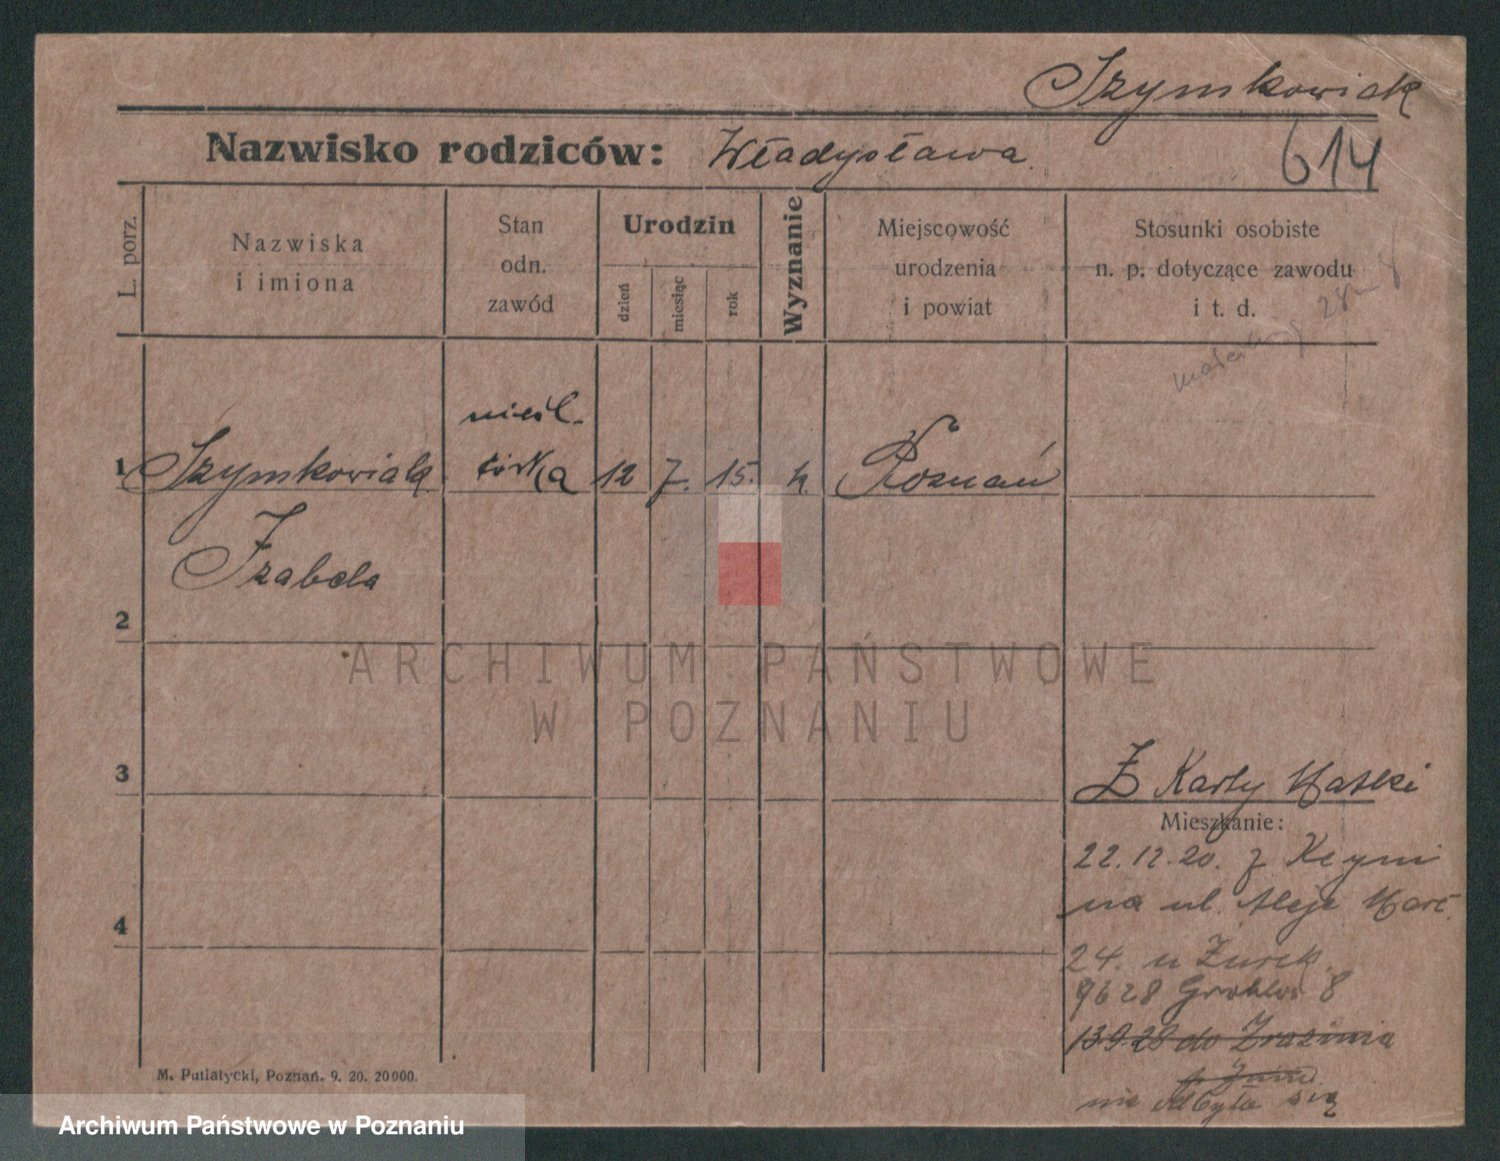 Szymkowiak
Nazwisko rodziców: Władysława
614
L. porz.
Nazwiska
i imiona
Stan
odn.
zawód
Urodzin
dzień
miesiąc
rok
Wyznanie
Miejscowość
urodzenia
i powiat
Stosunki osobiste
n. p. dotyczące zawodu
i t. d.
28
nieśl.
1 Szymkowiak córka 12 7. 15. k. Poznań
Izabela
2
ARCHIWUM PAŃSTWOWE
W POZNANIU
3
Z Karty Matki
Mieszkanie:
22.12.20. z Kcyni
na ul. Aleje Marc.
4
24. u Żurek
9628 Grobla 8
13.9.28 do
nie odbyła się
M. Putiatycki, Poznań. 9. 20. 20000.
Archiwum Państwowe w Poznaniu